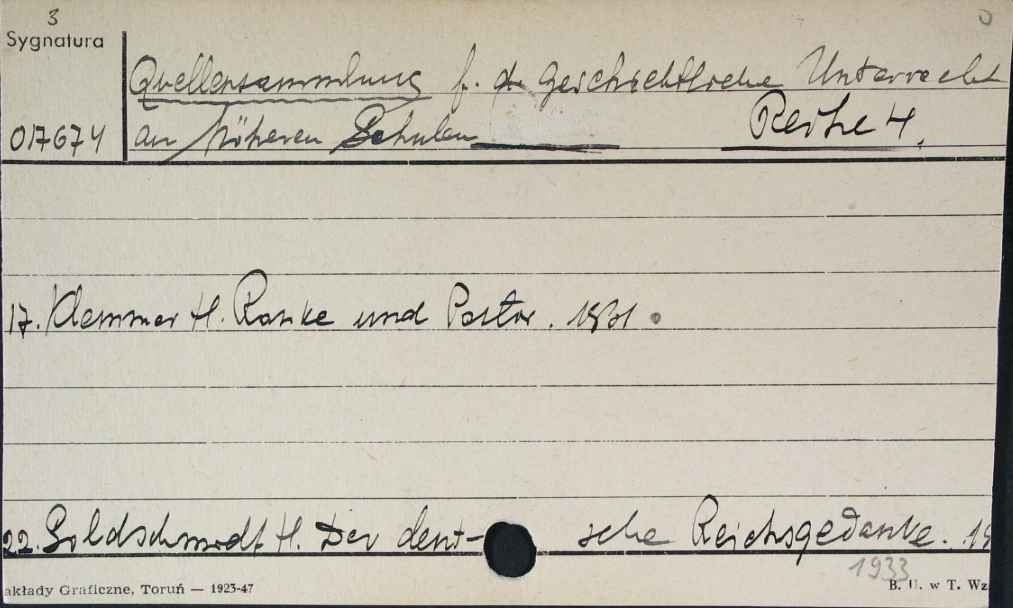 3
Sygnatura
Quellensammlung f. d. geschichtliche Unterrecht
017674 an höheren Schulen Reihe 4.
17. Klemmer H. Ranke und Pastor. 1931
22. Goldschmidt H. Der deut- sche Reichsgedanke. 19
1933
akłady Graficzne, Toruń — 1923-47 B. U. w T. Wz